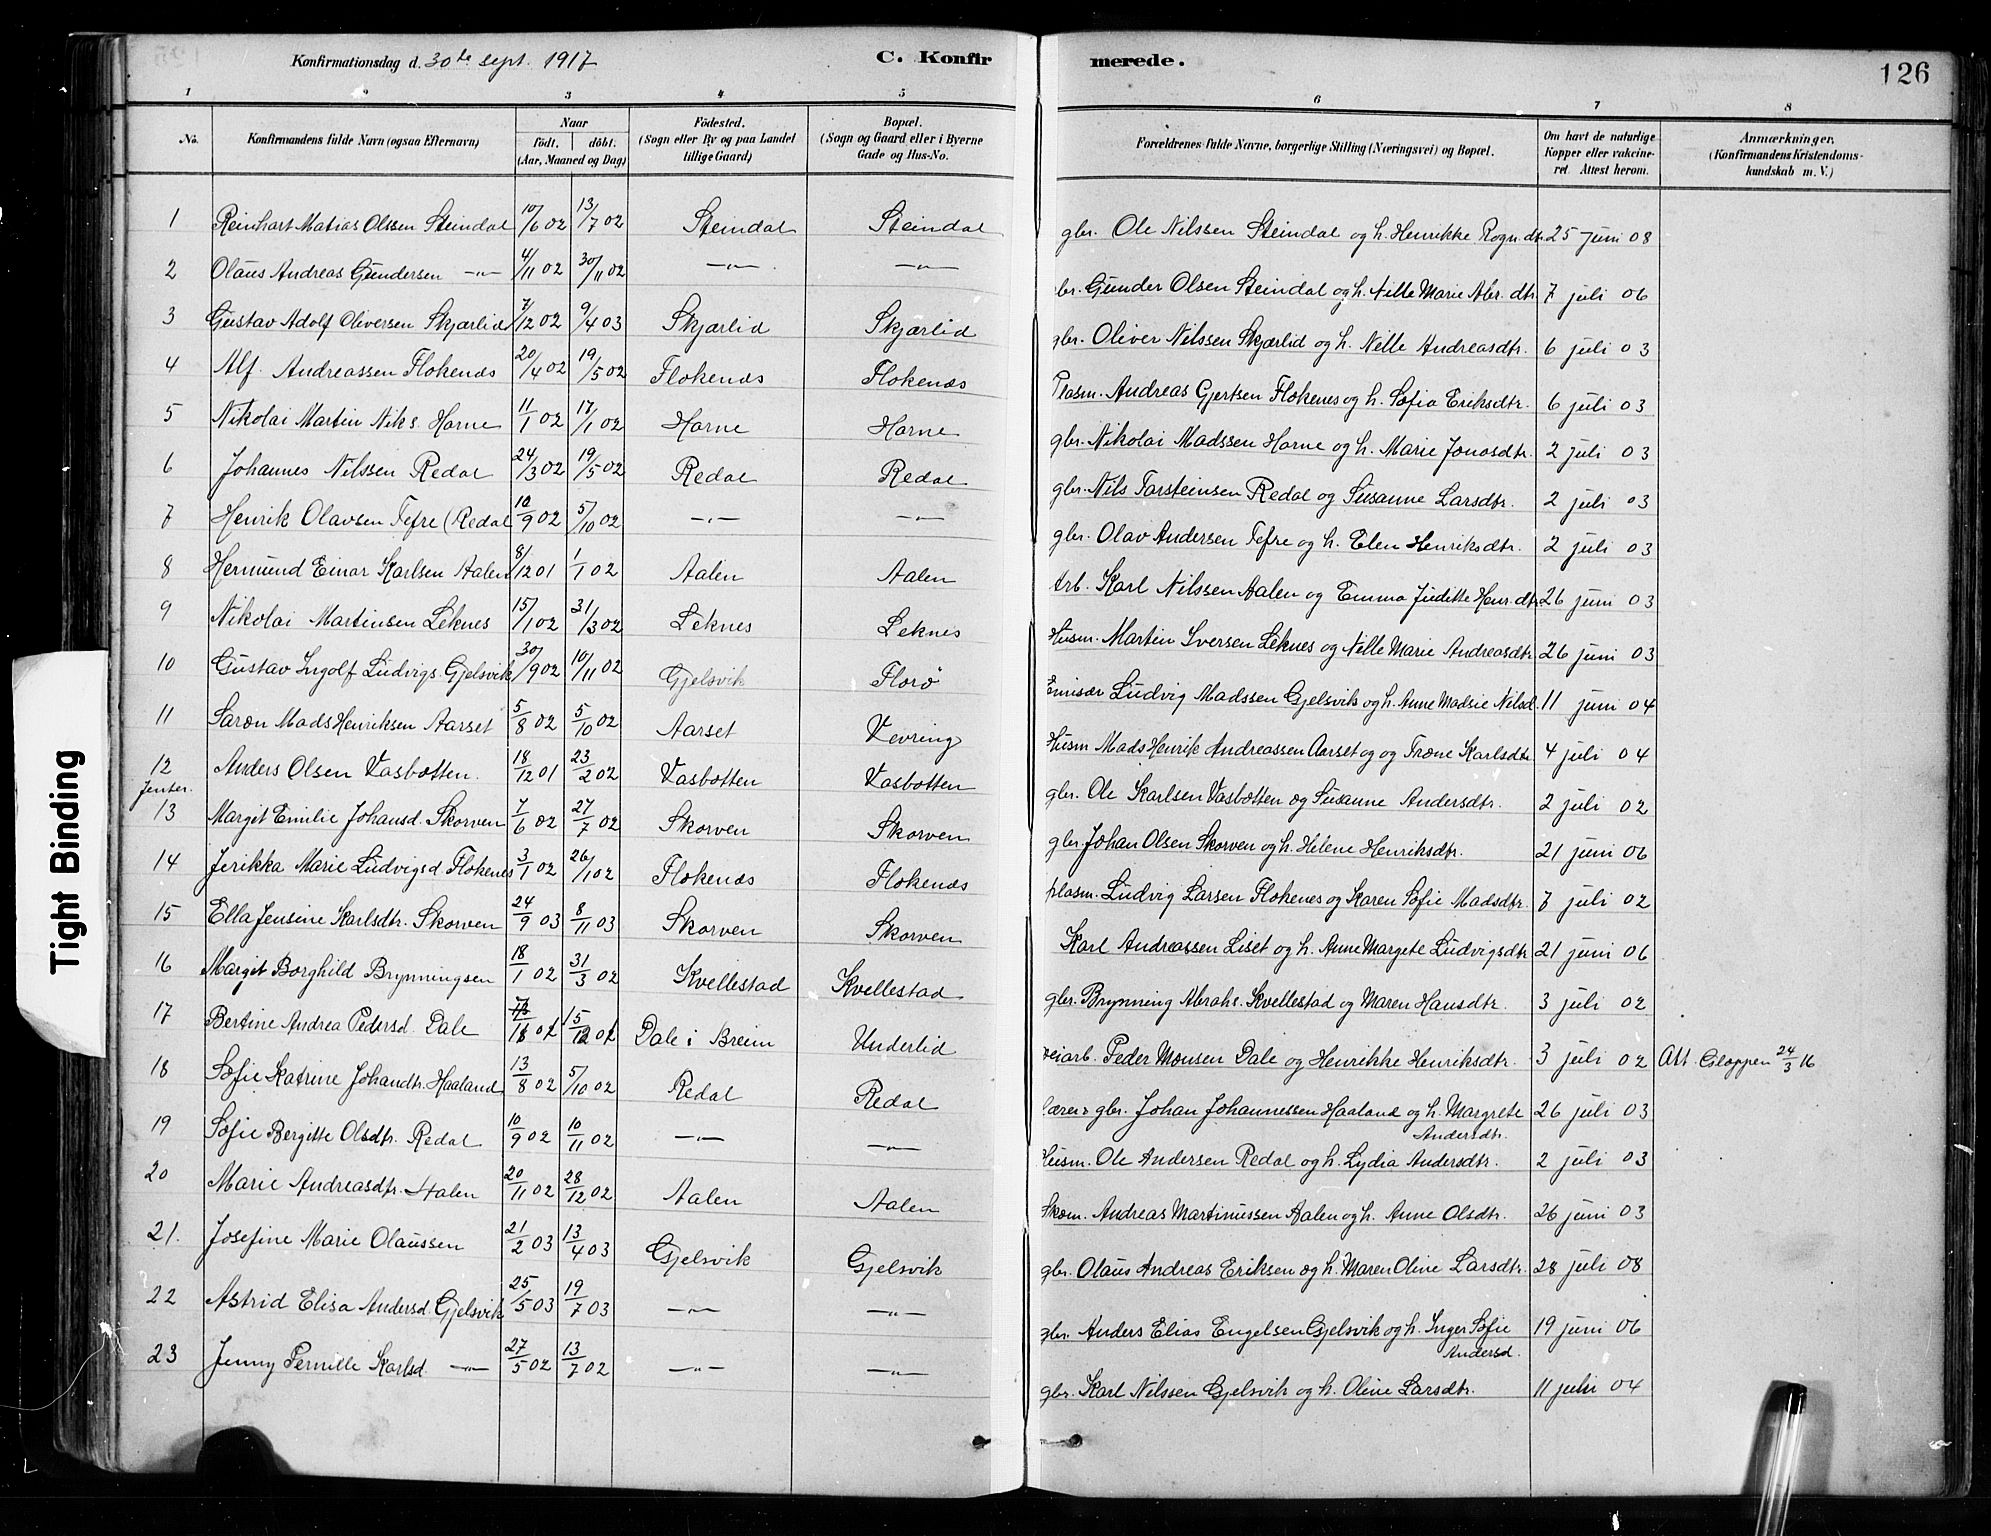 Konfirmationsdag d. 30te sept. 1917 C. Konfirmerede. 126
1 2 3 4 5 6 7 8
No. Konfirmandens fulde Navn (ogsaa Efternavn) Naar födt. döbt. (Aar, Maaned og Dag) Födested. (Sogn eller By og paa Landet tillige Gaard) Bopæl. (Sogn og Gaard eller i Byerne Gade og Hus-No. Forældrenes fulde Navne, borgerlige Stilling (Næringsvei) og Bopæl. Om havt de naturlige Kopper eller vakcineret. Attest herom. Anmærkninger. (Konfirmandens Kristendomskundskab m. V.)
1 Reinhart Matias Olssen Steindal 10/6 02 13/7 02 Steindal Steindal gbr. Ole Nilssen Steindal og h. Henrikke Rogn.dtr. 25 juni 08
2 Olaus Andreas Gundersen —"— 4/11 02 30/11 02 —"— —"— gbr. Gunder Olsen Steindal og h. Nille Marie Abr. dtr. 7 juli 06
3 Gustav Adolf Oliversen Skjærlid 7/12 02 9/4 03 Skjærlid Skjærlid gbr. Oliver Nilssen Skjærlid og h. Nelle Andreasdtr. 6 juli 03
4 Alf Andreassen Flokenes 20/4 02 19/5 02 Flokenes Flokenes Plasm. Andreas Gjertsen Flokenes og h. Sofia Eriksdtr. 6 juli 03
5 Nikolai Martin Niks. Horne 11/1 02 17/1 02 Horne Horne gbr. Nikolai Madssen Horne og h. Marie Jonasdtr. 2 juli 03
6 Johannes Nilssen Redal 24/3 02 19/5 02 Redal Redal gbr. Nils Torsteinsen Redal og Susanne Larsdtr. 2 juli 03
7 Henrik Olavsen Tefre (Redal 10/9 02 5/10 02 —"— —"— gbr. Olav Andersen Tefre og h. Elen Henriksdtr. 2 juli 03
8 Hermund Einar Karlsen Aalen 8/12 01 1/1 02 Aalen Aalen Arb. Karl Nilssen Aalen og Emma Juditte Henr.dtr. 26 juni 03
9 Nikolai Martinsen Leknes 15/1 02 31/3 02 Leknes Leknes Husm. Martin Iversen Leknes og Nille Marie Andreasdtr. 26 juni 03
10 Gustav Ingolf Ludvigs. Gjelsvik 30/9 02 10/11 02 Gjelsvik Florö Emisær Ludvig Madssen Gjelsvik og h. Anne Madsie Nilsd. 11 juni 04
11 Saron Mads Henriksen Aarset 5/8 02 5/10 02 Aarset Vevring Husm Mads Henrik Andreassen Aarset og og Trone Karlsdtr. 4 juli 04
12 Anders Olsen Vasbotten. 18/12 01 23/2 02 Vasbotten Vasbotten gbr. Ole Karlsen Vasbotten og Susanne Andersdtr. 2 juli 02
Jenter.
13 Margit Emilie Johansd. Skorven 7/6 02 27/7 02 Skorven Skorven gbr Johan Olsen Skorven og h. Helene Henriksdtr. 21 juni 06
14 Jerikka Marie Ludvigsd. Flokenes 3/1 02 26/1 02 Flokenes Flokenes plasm. Ludvig Larsen Flokenes og Karen Sofie Madsdtr. 7 juli 02
15 Ella Jensine Karlsdtr. Skorven 24/9 03 8/11 03 Skorven Skorven Karl Andreassen Liset og h. Anne Margete Ludvigsdtr. 21 juni 06
16 Margit Borghild Brynningsen 18/1 02 31/3 02 Kvellestad Kvellestad gbr. Brynning Abrahs. Kvellestad og Maren Hansdtr. 3 juli 02
17 Bertine Andrea Pedersd. Dale Dale i Breim Underlid veiarb. Peder Monsen Dale og Henrikke Henriksdtr. 3 juli 02 Att. Gloppen 24/3 16
18 Sofie Katrine Johandtr. Haaland 13/8 02 5/10 02 Redal Redal lærer gbr. Johan Johannessen Haaland og h. Margrete Andersdtr. 26 juli 03
19 Sofie Bergitte Olsdtr. Redal 10/9 02 10/11 02 —"— —"— Husm. Ole Andersen Redal og h. Lydia Andersdtr. 2 juli 03
20 Marie Andreasdtr. Aalen 20/11 02 28/12 02 Aalen Aalen Skom. Andreas Martinussen Aalen og h. Anne Olsdtr. 26 juni 03
21. Josefine Marie Olaussen 21/2 03 13/4 03 Gjelsvik Gjelsvik gbr. Olaus Andreas Eriksen og h. Maren Oline Larsdtr. 28 juli 08
22 Astrid Elisa Andersd. Gjelsvik 25/5 03 19/7 03 —"— —"— gbr. Anders Elias Engelsen Gjelsvik og h. Inger Sofie Andersd. 19 juni 06
23 Jenny Pernille Karlsd. —"— 27/5 02 13/7 02 —"— —"— gbr. Karl Nilssen Gjelsvik og h. Oline Larsdtr. 11 juli 04
Tight Binding